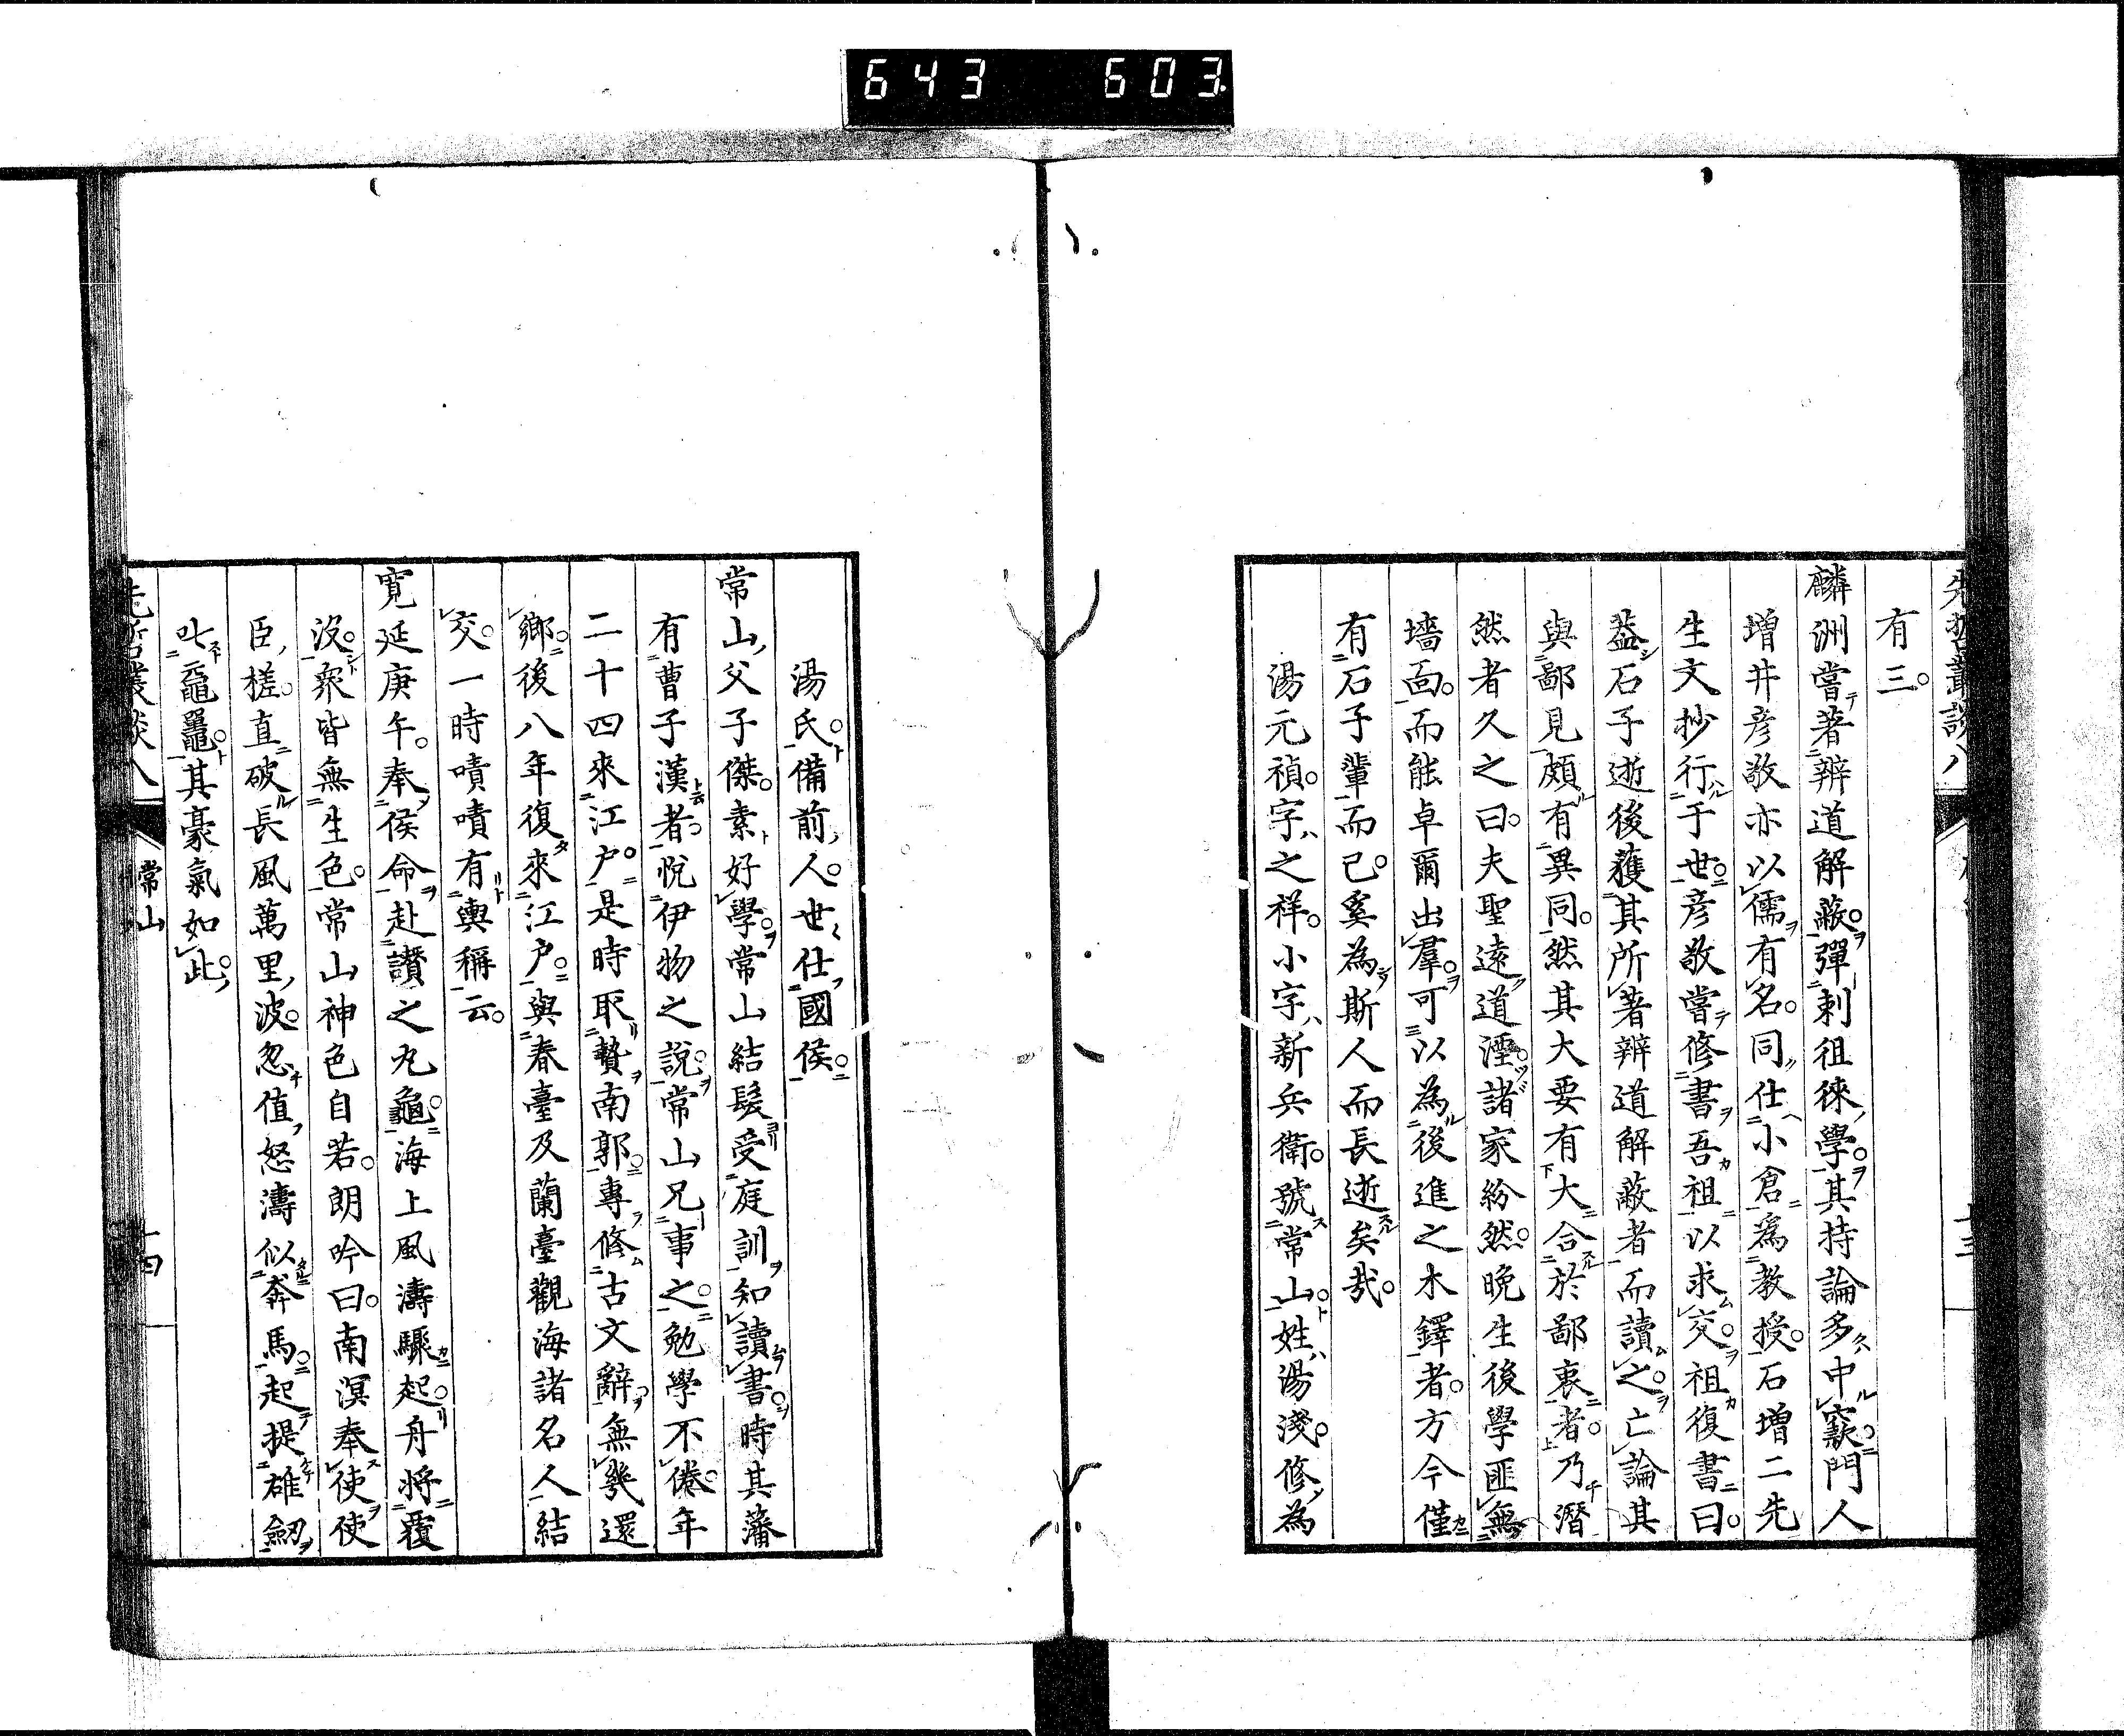 643 603
先哲叢談八
有三。
麟洲嘗著辨道解蔽。彈刺徂徠學。其持論多中窾。門人
增井彦敬亦以儒有名。同仕小倉為教授。石增二先
生文抄行于世。彦敬嘗修書吾祖以求交。祖復書曰。
蓋石子逝後獲其所著辨道解蔽者而讀之。亡論其
與鄙見頗有異同。然其大要有大合於鄙衷者。乃潛
然者久之曰。夫聖遠道湮。諸家紛然。晚生後學匪無
墻面。而能卓爾出羣。可以為後進之木鐸者。方今僅
有石子輩而已。奚為斯人而長逝矣哉。
湯元禎。字之祥。小字新兵衛。號常山。姓湯淺。修為
湯氏。備前人。世仕國侯。
常山父子傑。素好學。常山結髮受庭訓知讀書。時其藩
有曹子漢者。悅伊物之說。常山兄事之。勉學不倦。年
二十四來江戶。是時取贄南郭。專修古文辭。無幾還
鄉。後八年復來江戶。與春臺及蘭臺觀海諸名人結
交。一時嘖嘖有輿稱云。
寛延庚午。奉侯命赴讃之丸龜。海上風濤驟起。舟將覆
沒。衆皆無生色。常山神色自若。朗吟曰。南溟奉使使
臣槎。直破長風萬里波。忽值怒濤似奔馬。起提雄劒
叱黿鼉。其豪氣如此。
先哲叢談八
常山
十四